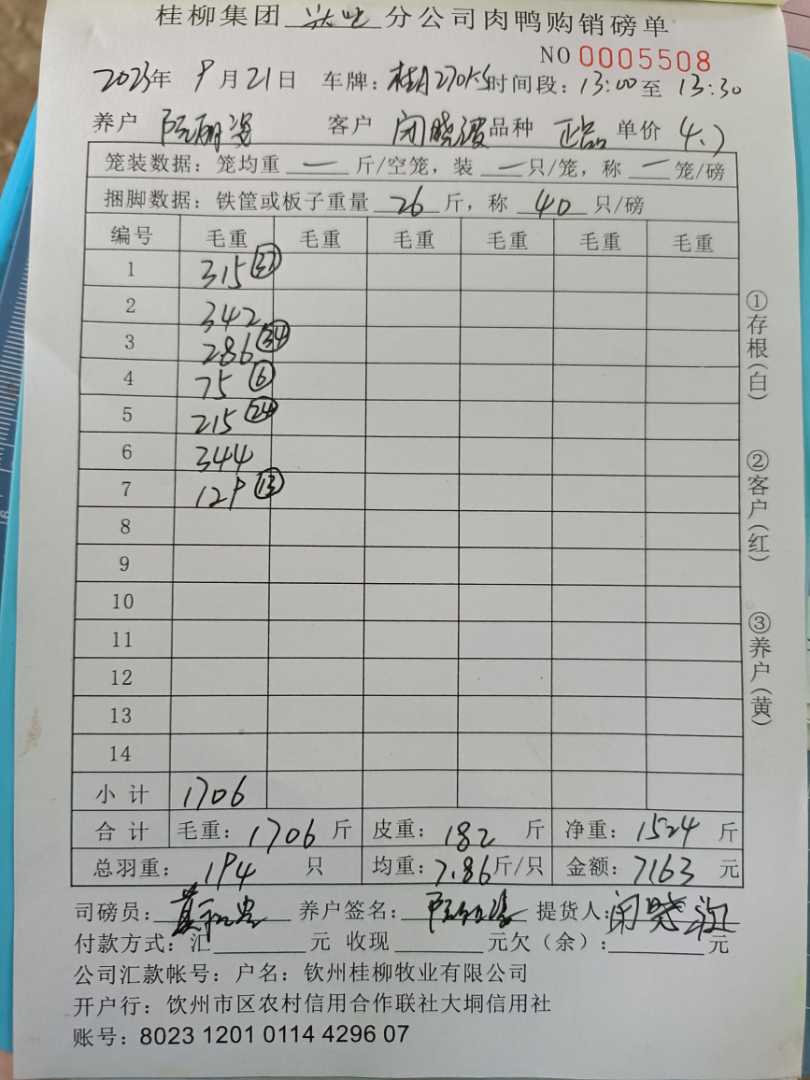 桂柳集团 分公司肉鸭购销磅单
NO 0005508
2023年 9月21日 车牌：桂A270K5 时间段：13:00至 13:30
养户 阮丽姿 客户 闭晓波 品种 正品 单价 4.7
笼装数据：笼均重 一 斤/空笼，装 一 只/笼，称 一 笼/磅
捆脚数据：铁筐或板子重量 26 斤，称 40 只/磅
编号 毛重 毛重 毛重 毛重 毛重 毛重
1 315 37
2 342
3 286 34
4 75 6
5 215 24
6 344
7 129 13
8
9
10
11
12
13
14
小计 1706
合计 毛重：1706 斤 皮重：182 斤 净重：1524 斤
总羽重：194 只 均重：7.86斤/只 金额：7163 元
司磅员： 养户签名：阮丽姿 提货人：闭晓波
付款方式：汇 元 收现 元欠（余）： 元
公司汇款帐号：户名：钦州桂柳牧业有限公司
开户行：饮州市区农村信用合作联社大垌信用社
账号：8023 1201 0114 4296 07
①存根(白)
②客户(红)
③养户(黄)